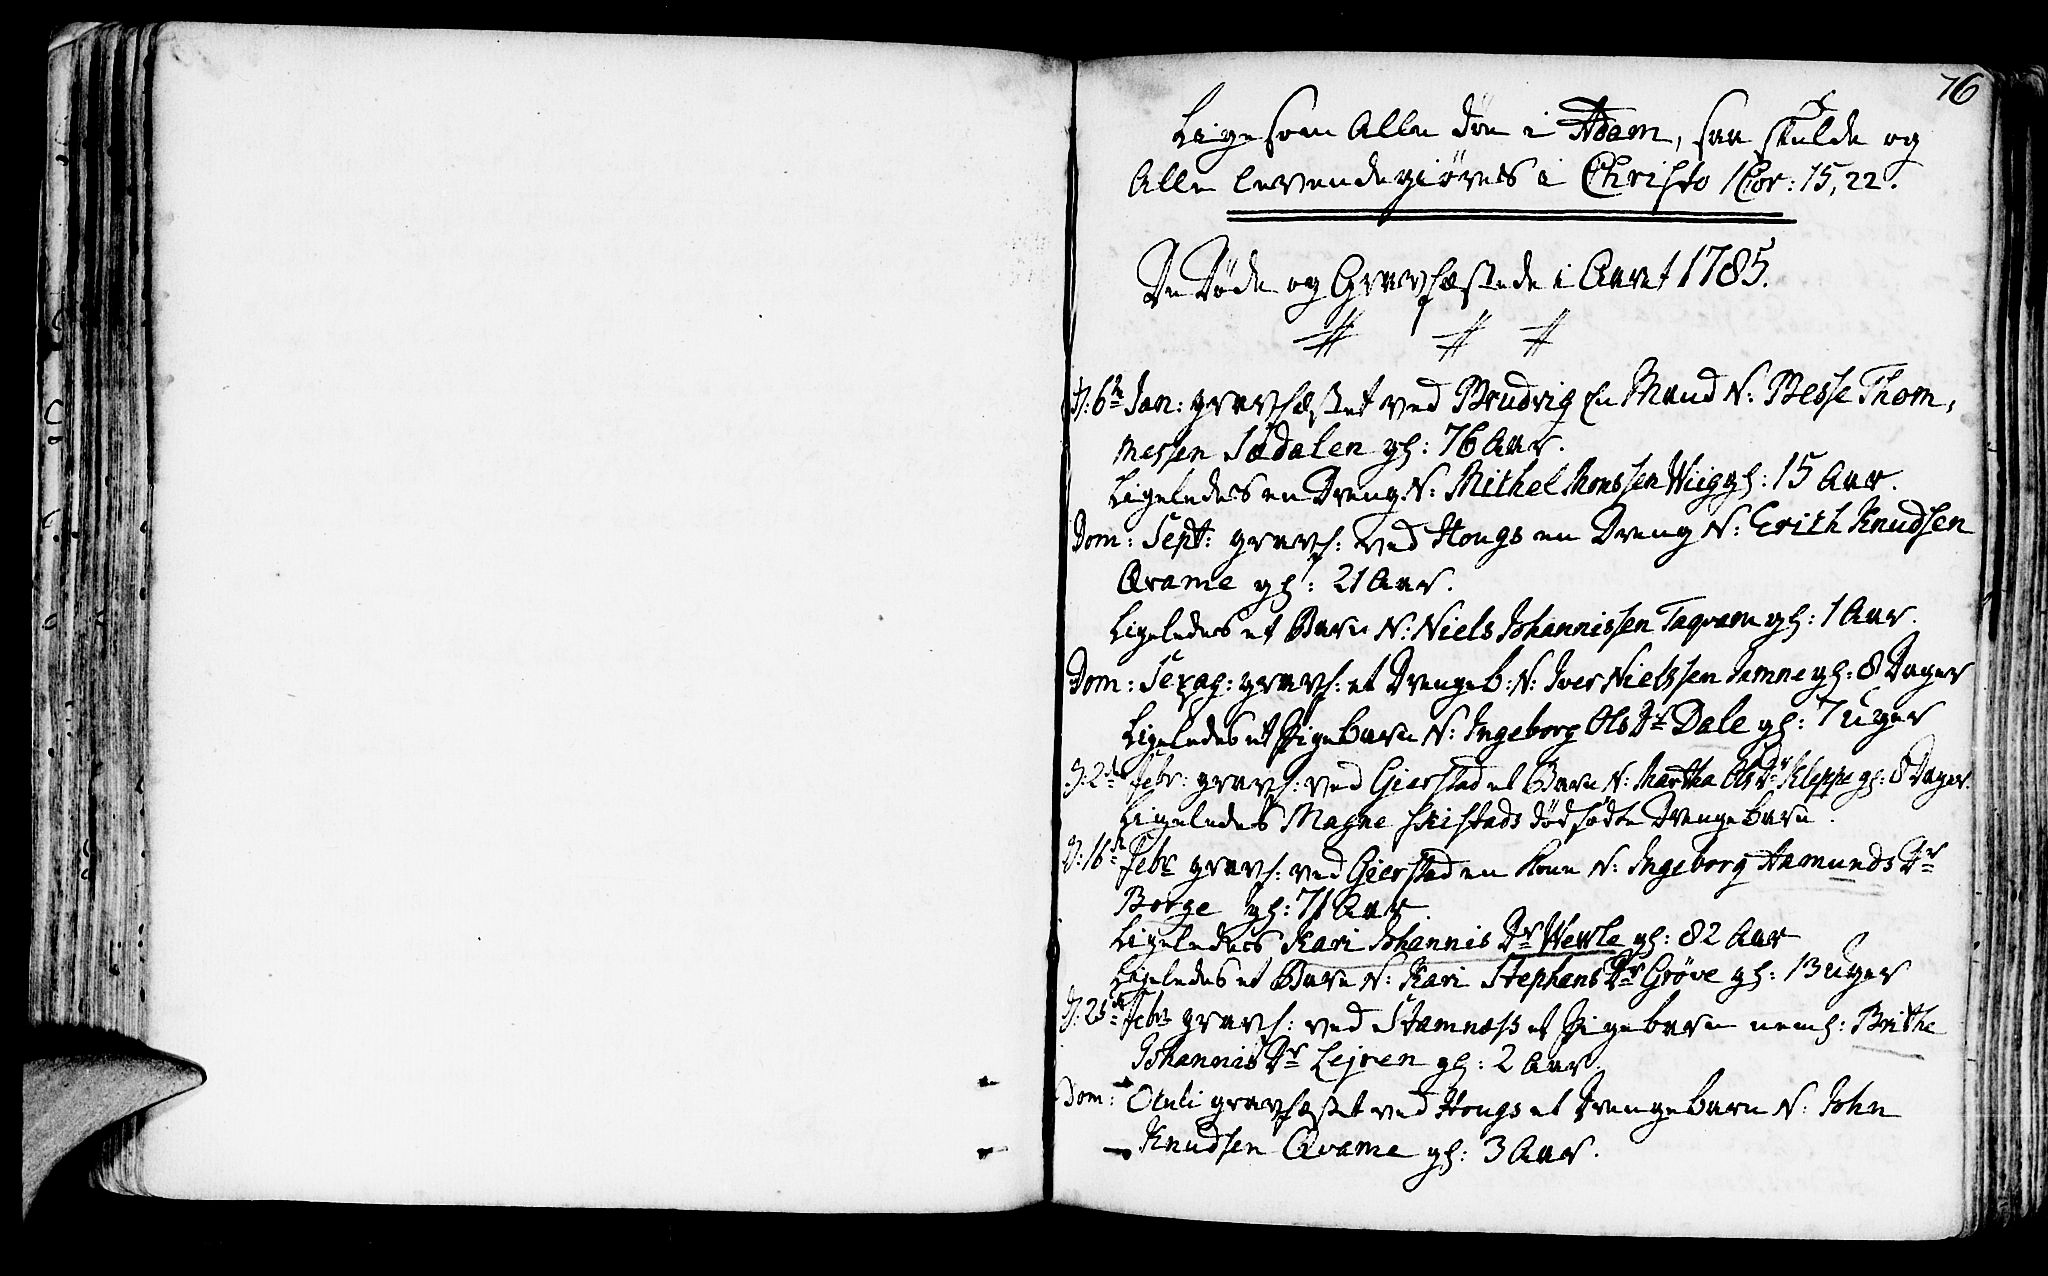 76
Ligesom Alle döe i Adam, saa skulde og
Alle levendegiøres i Christo 1 Cor: 15, 22.
De Döde og Gravfæstede i Aaret 1785.
D: 6te Jan: gravfæstet ved Brudvig En Mand N: Besse Thom,
messen Sædalen gl: 76 Aar.
Ligeledes en Dreng N: Michel Monssen Wiig gl: 15 Aar.
Dom: Sept: gravf: ved Hougs en Dreng N: Erich Knudsen
Qvame gl: 21 Aar.
Ligeledes et Barn N: Niels Johannissen Taqvam gl: 1 Aar.
Dom: Sexag: gravf: et Drengeb: N: Iver Nielssen Jamne gl: 8 Dager
Ligeledes et Pigebarn N: Ingeborg Ols Dr Dale gl: 7 Uger
D: 2de Febr: gravf: ved Gierstad et Barn N: Martha Ols Dr Kleppe gl: 8 Dager.
Ligeledes Magne Hæstads dödfödte Drengebarn.
D: 16de Febr gravf: ved Gierstad en Kone N: Ingeborg Aamunds Dr
Borge gl: 71 Aar.
Ligeledes Kari Johannis Dr Wewle gl: 82 Aar
Ligeledes et Barn N: Kari Stephens Dr Gröve gl: 13 Uger
D: 25de Febr gravf: ved Stamnæss et Pigebarn navnl: Brithe
Johannis Dr Lejren gl: 2 Aar.
Dom: Oculi gravfæstet ved Hougs et Drengebarn N: John
Knudsen Qvame gl: 3 Aar.